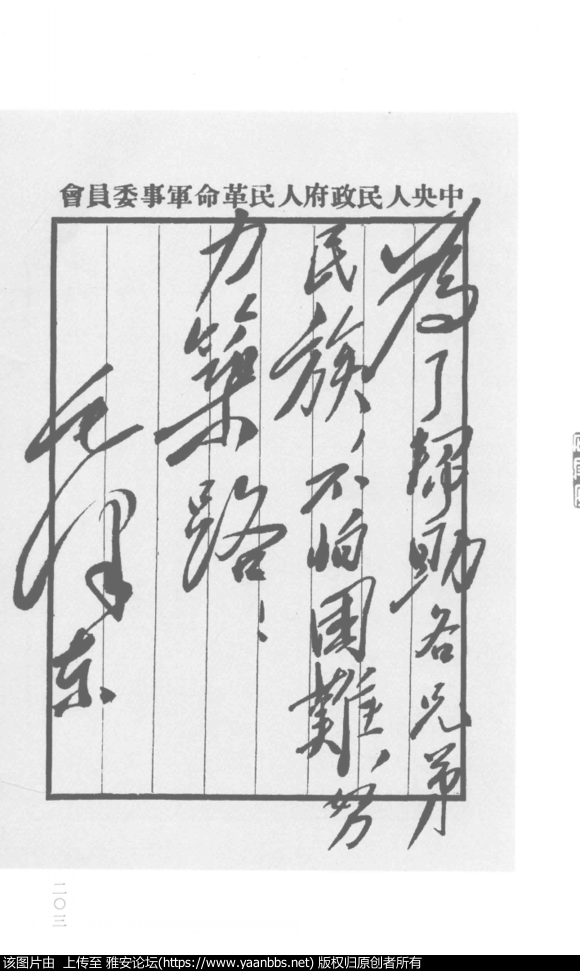 中央人民政府人民革命軍事委員會
為了幫助各兄弟
民族,不怕困難,努
力築路!
毛澤东
二〇三
该图片由 上传至 雅安论坛(https://www.yaanbbs.net) 版权归原创者所有